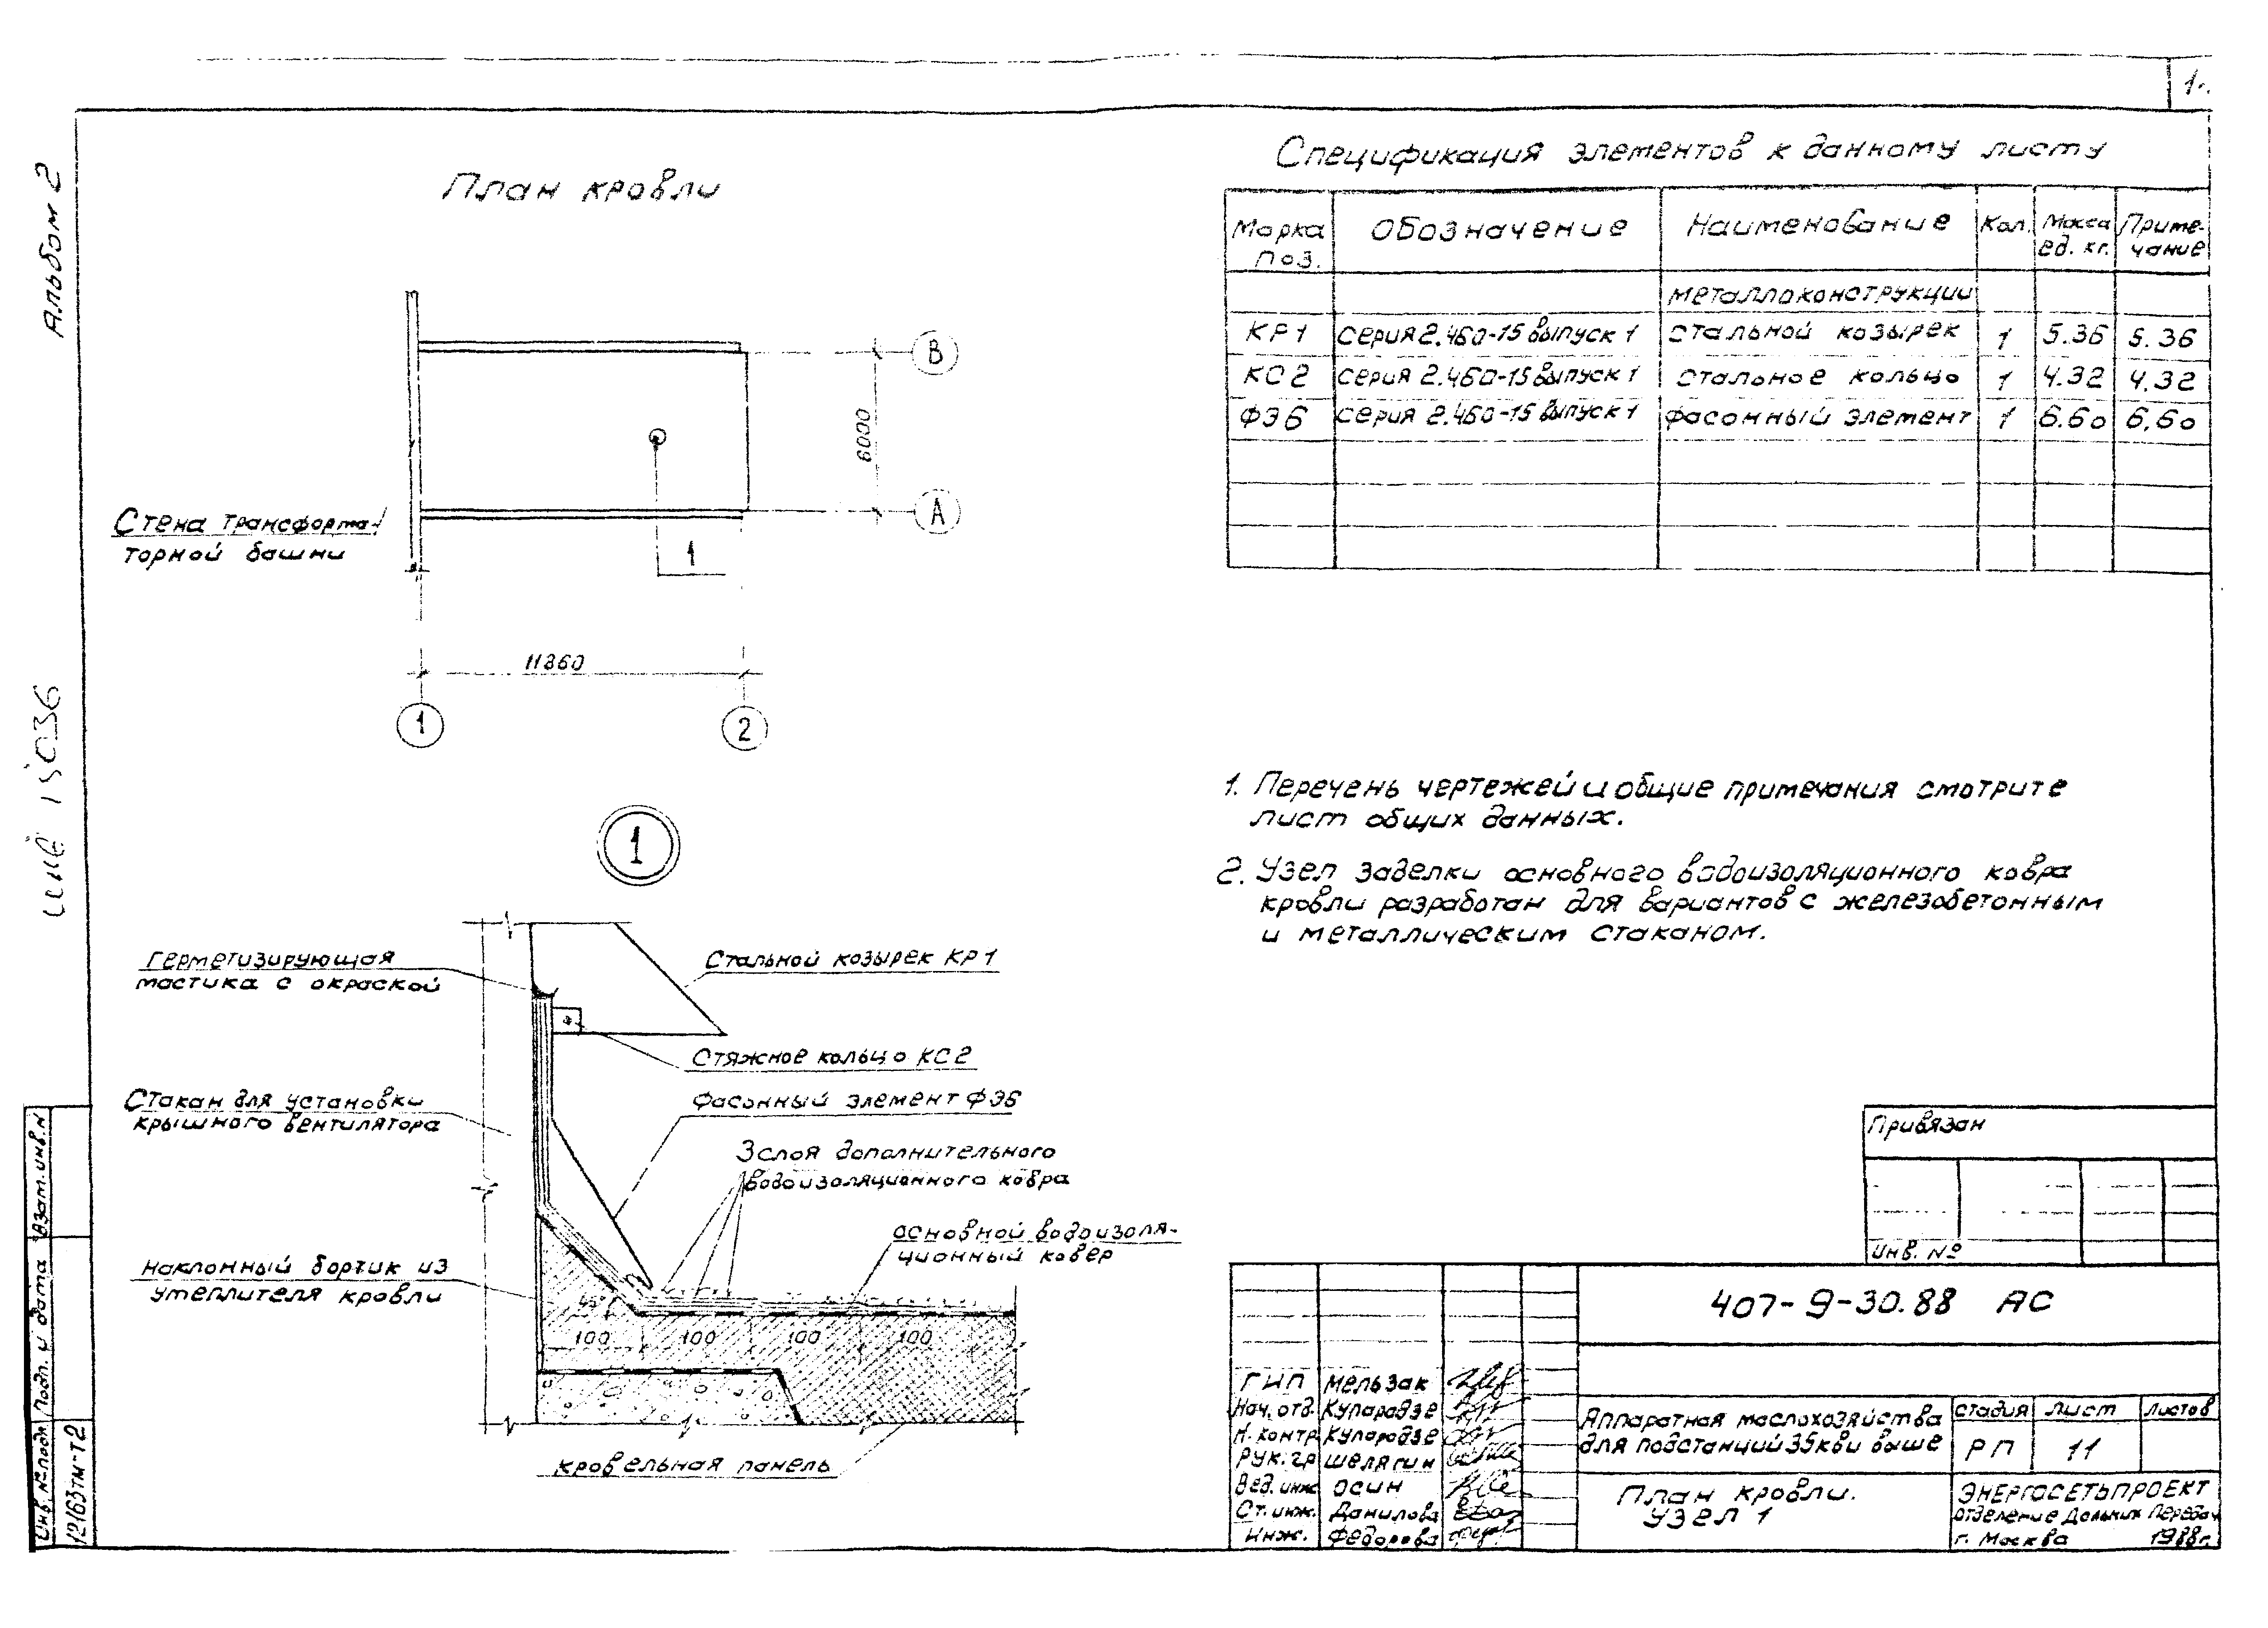 Альбом 2
План кровли
В
6000
А
Стена трансформа-
торной башни
1
11860
1
2
1
Герметизирующая
мастика с окраской
Стальной козырек КР1
Стяжное кольцо КС2
Стакан для установки
крышного вентилятора
Фасонный элемент ФЭ6
3 слоя дополнительного
водоизоляционного ковра
основной водоизоля-
ционный ковер
наклонный бортик из
утеплителя кровли
45°
100 100 100 100
кровельная панель
Спецификация элементов к данному листу
Марка поз. Обозначение Наименование Кол. Масса ед. кг. Примечание
металлоконструкции
КР1 серия 2.460-15 выпуск 1 стальной козырек 1 5.36 5.36
КС2 серия 2.460-15 выпуск 1 стальное кольцо 1 4.32 4.32
ФЭ6 серия 2.460-15 выпуск 1 фасонный элемент 1 6.60 6.60
1. Перечень чертежей и общие примечания смотрите
лист общих данных.
2. Узел заделки основного водоизоляционного ковра
кровли разработан для вариантов с железобетонным
и металлическим стаканом.
Привязан
Инв. №
407-9-30.88 АС
ГИП Мельзак
Нач. отд. Купарадзе
Н. контр Купарадзе
Рук. гр Шелягин
Вед. инж Осин
Ст. инж. Данилова
Инж. Федорова
Аппаратная маслохозяйства
для подстанций 35кв и выше
стадия лист листов
РП 11
План кровли.
Узел 1
ЭНЕРГОСЕТЬПРОЕКТ
Отделение Дальних Передач
г. Москва 1988г.
Взам. инв. N
Подп. и дата
Инв. № подл
12163тм-т2